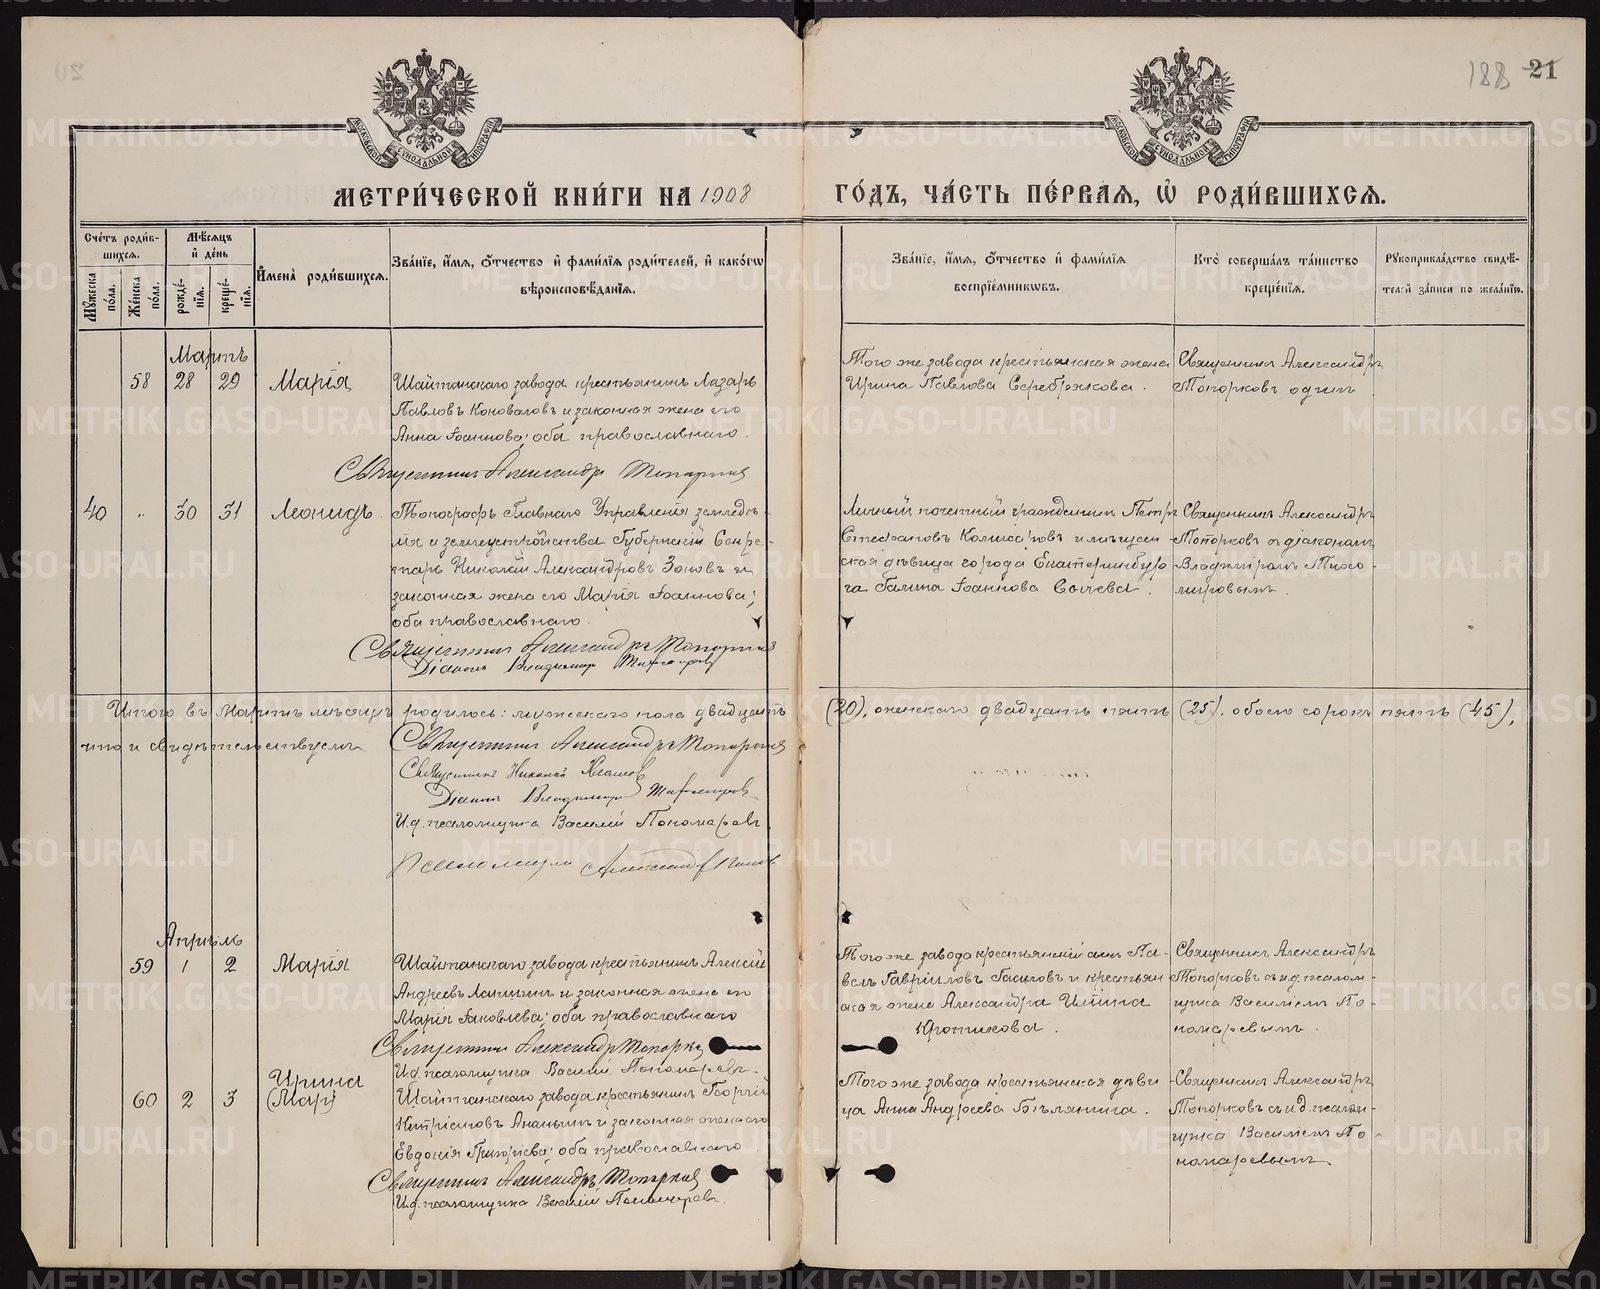 188 21
МЕТРИ́ЧЕСКОЙ КНИ́ГИ НА 1908 ГО́ДЪ, ЧА́СТЬ ПЕ́РВАЯ, Ѡ҆ РОДИ́ВШИХСЯ.
Сче́тъ роди́в-
шихся.
Мꙋжеска по́ла.
Же́нска по́ла.
Мѣ́сяцъ
и҆ де́нь
рожде́нїя.
креще́нїя.
И҆мена̀ роди́вшихся.
Зва́нїе, и҆́мя, ѻ҆́тчество и҆ фами́лїя роди́телей, и҆ како́гѡ
вѣроисповѣ́данїя.
Зва́нїе, и҆́мя, ѻ҆́тчество и҆ фами́лїя
воспрїе́мникѡвъ.
Кто̀ соверша́лъ та́инство
креще́нїя.
Рꙋкоприкла́дство свидѣ́-
телей за́писи по жела́нїю.
Мартъ
58 28 29 Марія
Шайтанскаго завода крестьянинъ Лазарь
Павловъ Коноваловъ и законная жена его
Анна Іоаннова; оба православнаго.
Священникъ Александръ Топорковъ
Того же завода крестьянская жена
Ирина Павлова Серебрякова.
Священникъ Александръ
Топорковъ одинъ
40 „ 30 31 Леонидъ
Топографъ Главнаго Управленія земледѣ-
лія и землеустройства Губернскій Секре-
тарь Николай Александровъ Зоновъ и
законная жена его Марія Іоаннова;
оба православнаго.
Священникъ Александръ Топорковъ
Діаконъ Владимиръ Тихомировъ
Личный почетный гражданинъ Петръ
Стефановъ и мѣщан-
ская дѣвица города Екатеринбур-
га Галина Іоаннова Сычева.
Священникъ Александръ
Топорковъ съ діакономъ
Владимиромъ Тихо-
мировымъ.
Итого въ Мартѣ мѣсяцѣ родилось: мужескаго пола двадцать (20), женскаго двадцать пять (25), обоего сорокъ пять (45),
что и свидѣтельствуемъ
Священникъ Александръ Топорковъ
Священникъ Николай
Діаконъ Владимиръ Тихомировъ
И.д. псаломщика Василій Пономаревъ
Псаломщикъ Александръ
Апрѣль
59 1 2 Марія
Шайтанскаго завода крестьянинъ Алексій
Андреевъ Лапшинъ и законная жена его
Марія Іаковлева; оба православнаго
Священникъ Александръ Топорковъ
И.д. псаломщика Василій Пономаревъ.
Того же завода крестьянскій сынъ Па-
велъ Гавріиловъ и крестьян-
ская жена Александра Ильина
Кропикова.
Священникъ Александръ
Топорковъ съ и.д. псалом-
щика Василіемъ По-
номаревымъ.
Ирина
60 2 3 (Мар)
Шайтанскаго завода крестьянинъ Георгій
Ананьинъ и законная жена его
Евдокія Григоріева; оба православнаго
Священникъ Александръ Топорковъ
И.д. псаломщика Василій Пономаревъ.
Того же завода крестьянская дѣви-
ца Анна Андреева Бѣлянина.
Священникъ Александръ
Топорковъ съ и.д. псалом-
щика Василіемъ По-
номаревымъ.
METRIKI.GASO-URAL.RU